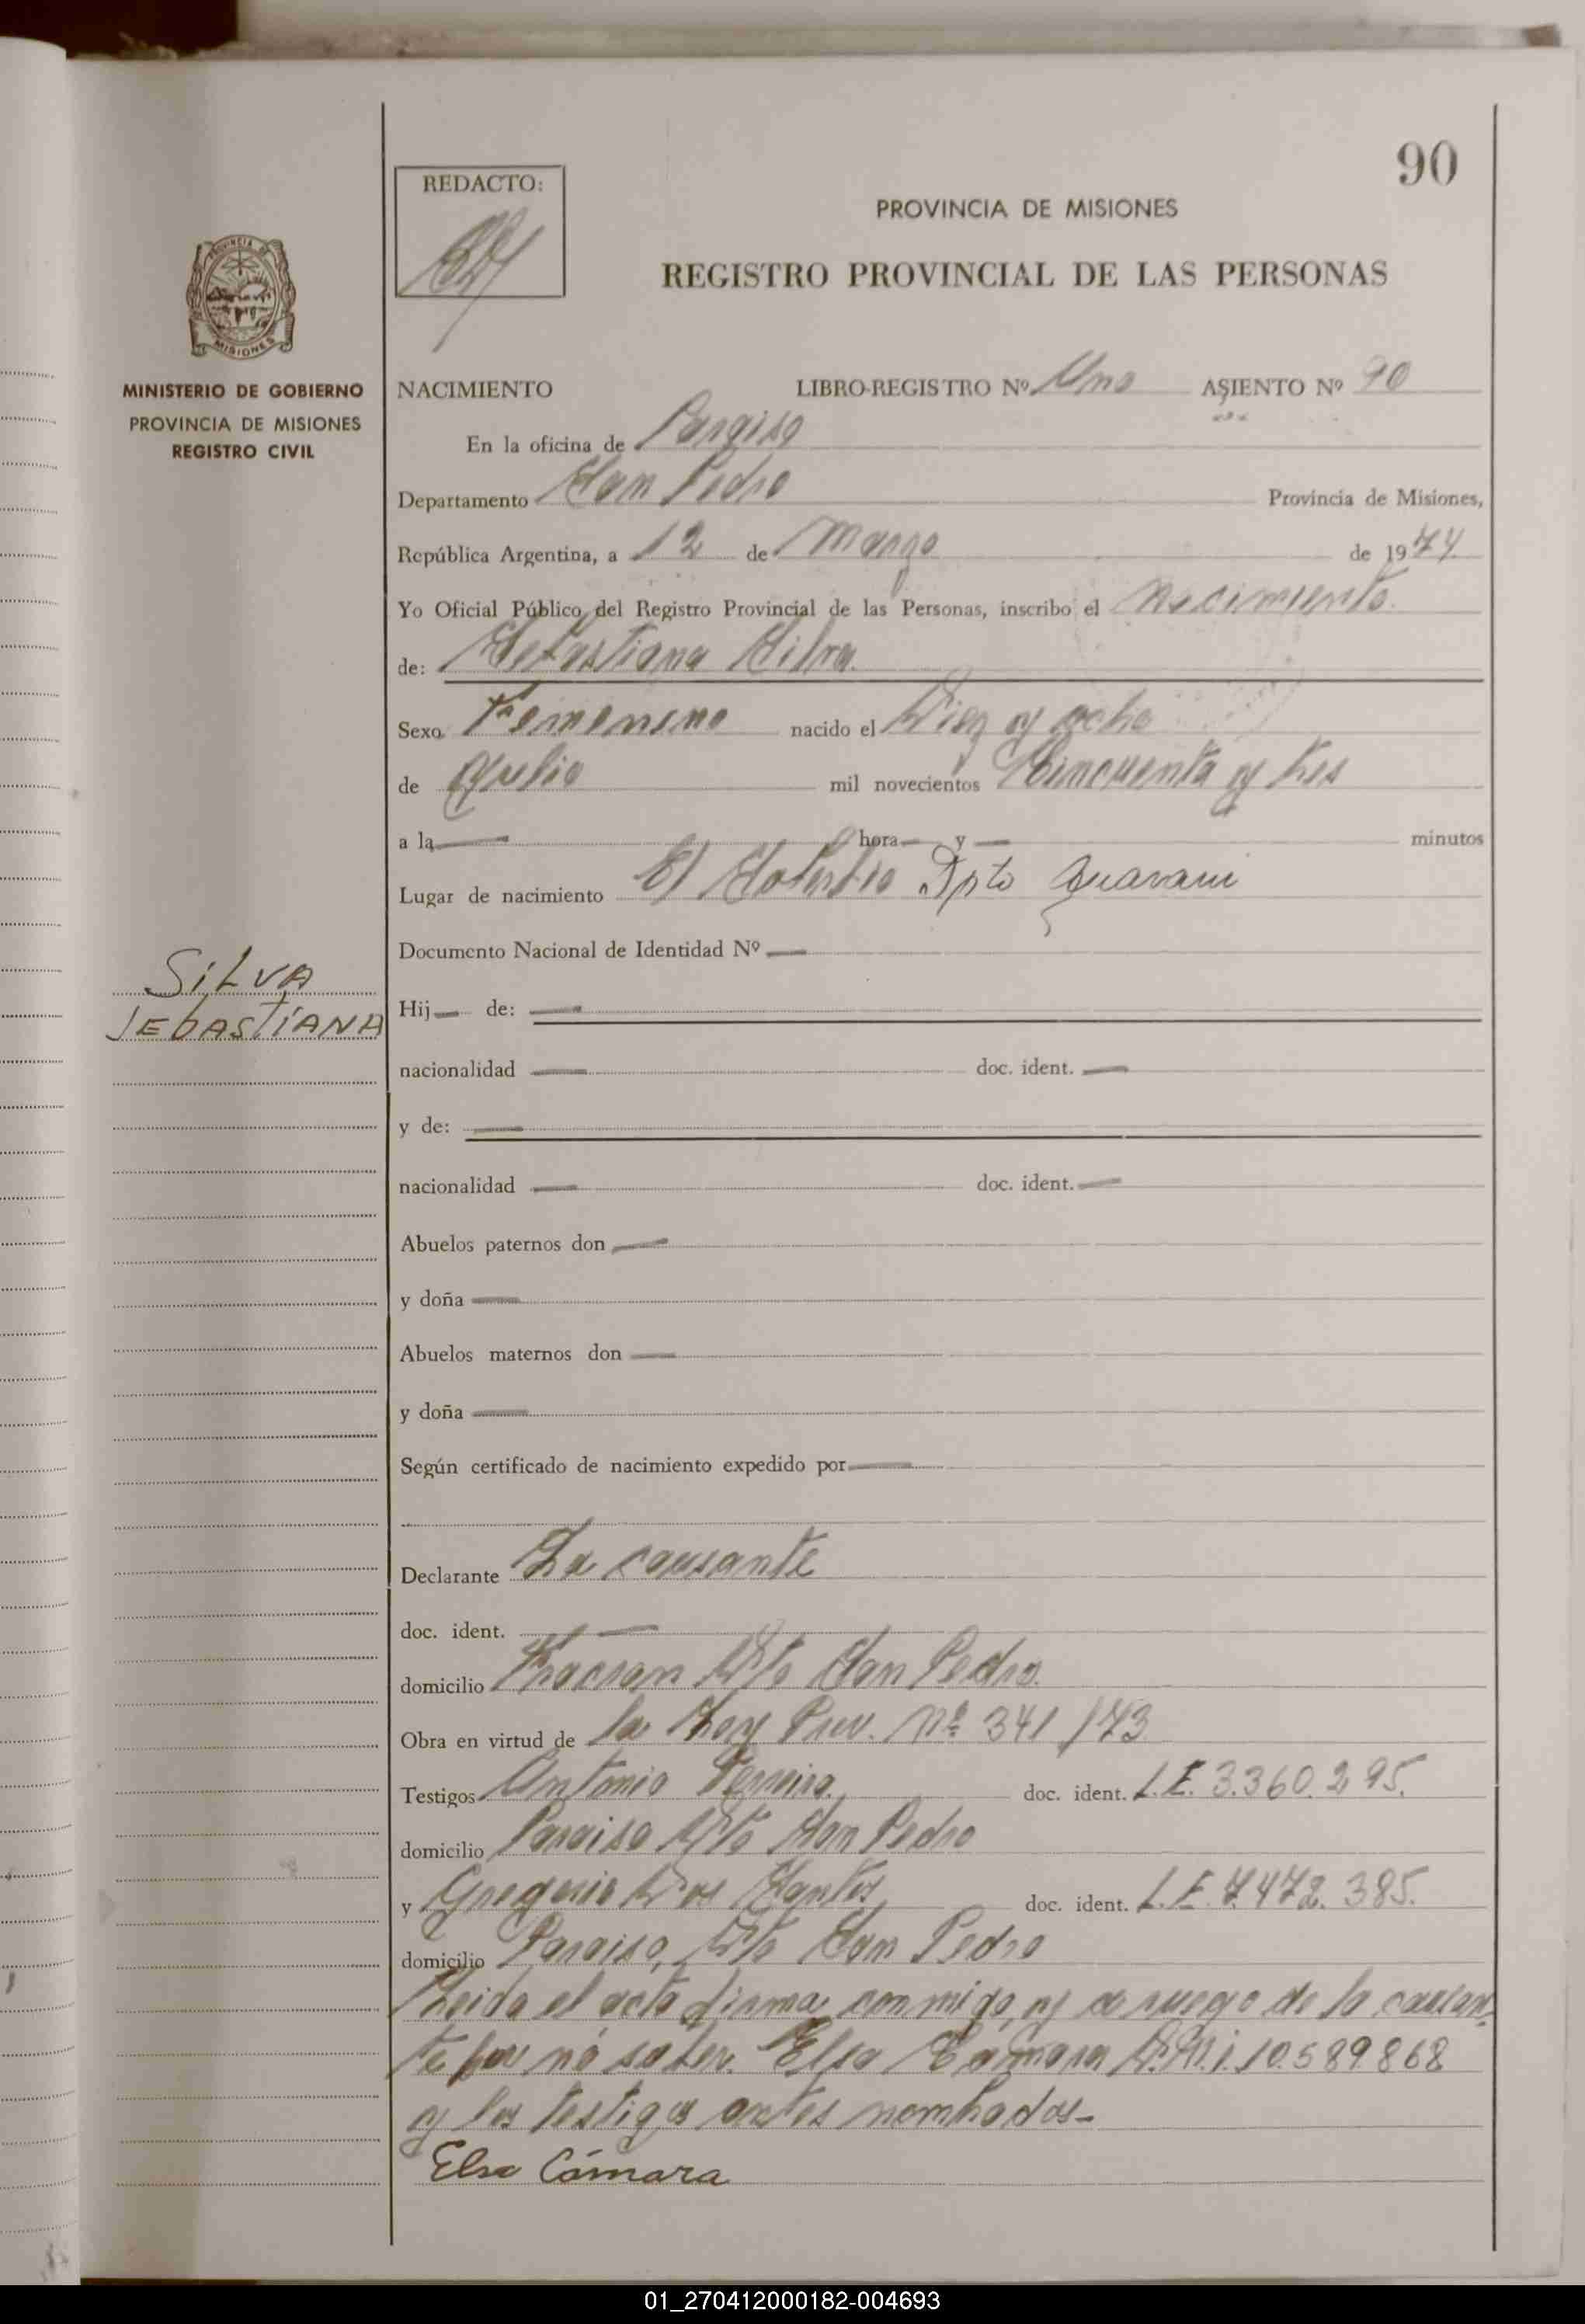 90
REDACTO:
PROVINCIA DE MISIONES
REGISTRO PROVINCIAL DE LAS PERSONAS
PROVINCIA DE
MISIONES
MINISTERIO DE GOBIERNO
PROVINCIA DE MISIONES
REGISTRO CIVIL
NACIMIENTO LIBRO-REGISTRO Nº Uno ASIENTO Nº 90
En la oficina de Paraiso
Departamento San Pedro Provincia de Misiones,
República Argentina, a 12 de Marzo de 1974
Yo Oficial Público del Registro Provincial de las Personas, inscribo el Nacimiento.
de: Sebastiana Silva.
Sexo Femenino nacido el Diez y ocho
de Julio mil novecientos Cincuenta y tres
a la — hora — y — minutos
Lugar de nacimiento El Soberbio Dpto Guarani
Documento Nacional de Identidad Nº —
SILVA
SEbASTIANA
Hij — de: —
nacionalidad — doc. ident. —
y de: —
nacionalidad — doc. ident. —
Abuelos paternos don —
y doña —
Abuelos maternos don —
y doña —
Según certificado de nacimiento expedido por —
Declarante La causante
doc. ident. —
domicilio Fracran Dto San Pedro.
Obra en virtud de la Ley Prov. Nº 341/73
Testigos Antonio Ferreira. doc. ident. L.E. 3.360.295.
domicilio Paraiso Dto San Pedro
y Gregorio Dos Santos doc. ident. L.E. 7.472.385.
domicilio Paraiso, Dto San Pedro
Leida el acta firma conmigo, y a ruego de la causan
te por no saber. Elsa Camara D.N.i. 10.589868
y los testigos antes nombrados-
Elsa Cámara
01_270412000182-004693